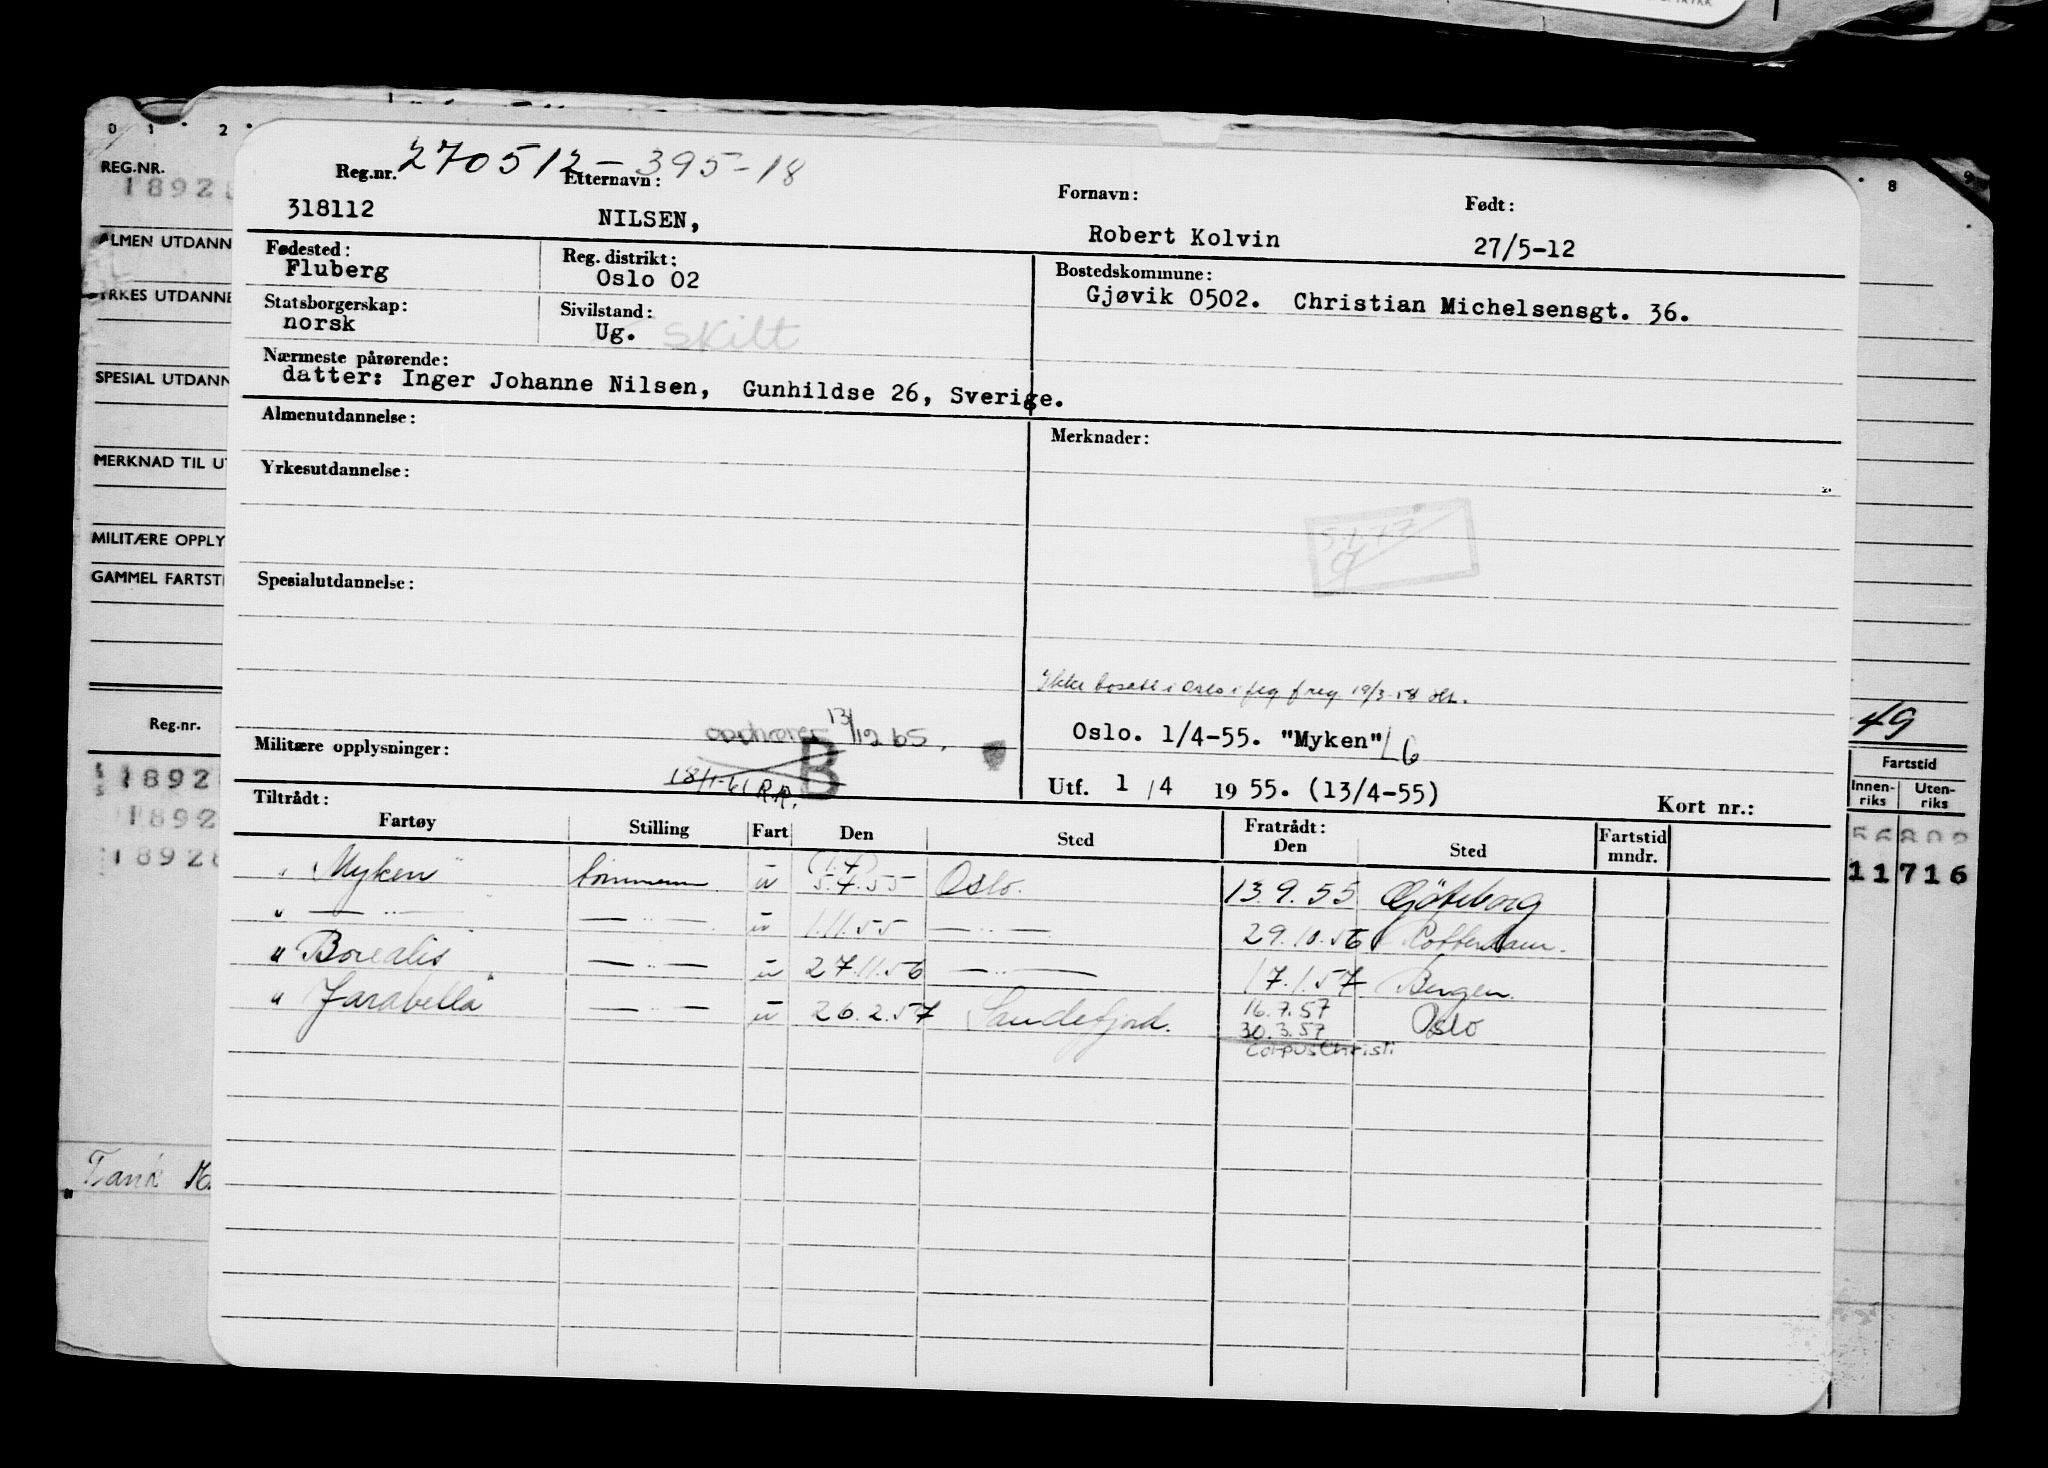 0 1 2 8 9
REG.NR.
1892
ALMEN UTDANN
YRKES UTDANNE
SPESIAL UTDANN
MERKNAD TIL UT
MILITÆRE OPPLY
GAMMEL FARTSTI
Reg.nr.
1892
1892
1892
Tank
49
Fartstid
Innen-riks Uten-riks
11 716
270512-395-18
Reg.nr. Etternavn: Fornavn: Født:
318112 NILSEN, Robert Kolvin 27/5-12
Fødested: Reg. distrikt: Bostedskommune:
Fluberg Oslo 02 Gjøvik 0502. Christian Michelsensgt. 36.
Statsborgerskap: Sivilstand:
norsk Ug. skilt
Nærmeste pårørende:
datter: Inger Johanne Nilsen, Gunhildse 26, Sverige.
Almenutdannelse: Merknader:
Yrkesutdannelse:
5.1.73
Spesialutdannelse:
Ikke bosatt i Oslo i flg freg 19/3-58
13/12 65.
Oslo. 1/4-55. "Myken" L6
Militære opplysninger: B
18/1-61 R.R.
Utf. 1/4 1955. (13/4-55)
Kort nr.:
Tiltrådt: Fratrådt:
Fartøy Stilling Fart Den Sted Den Sted Fartstid mndr.
1.4
" Myken " tømmerm u 5.4.55 Oslo. 13.9.55 Göteborg
" — " — — " — u 1.11.55 — " — 29.10.56 Rotterdam.
" Borealis " — " — u 27.11.56 — " — 17.1.57 Bergen.
" Jarabella " — " — u 26.2.57 Sandefjord. 16.7.57 Oslo
30.3.57
Corpus Christi